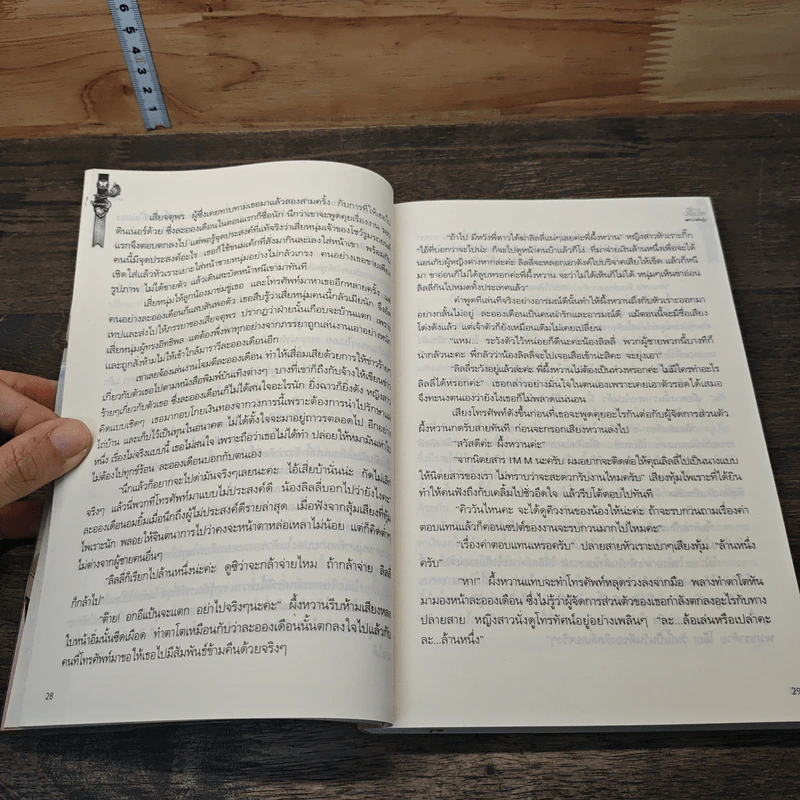 6 5 4 3 2 1
เสี่ยจตุพร ผู้ซึ่งเคยทาบทามเธอมาแล้วสองสามครั้ง กับการที่ให้เธอไป
ดินเนอร์ด้วย ซึ่งละอองเดือนในตอนแรกก็ซื่อนัก นึกว่าเขาจะพูดคุยเรื่องงาน
แรกจึงตอบตกลงไป แต่พอรู้จุดประสงค์ที่แท้จริงว่าเสี่ยหนุ่มเจ้าของโชว์รูมรถยนต์
คนนี้มีจุดประสงค์อะไร เธอก็ใช้ขนมเค้กที่สั่งมากินละเลงใส่หน้าเขา พร้อมกับ
เชิดใส่แล้วหัวเราะเยาะใส่หน้าชายหนุ่มอย่างไม่กลัวเกรง คนอย่างเธอขายเพียง
รูปภาพ ไม่ได้ขายตัว แล้วเดินสะบัดหน้าหนีเขามาทันที
เสี่ยหนุ่มให้ลูกน้องมาข่มขู่เธอ และโทรศัพท์มาหาเธออีกหลายครั้ง แต่
คนอย่างละอองเดือนก็แสบสันพอตัว เธอสืบรู้ว่าเสี่ยหนุ่มคนนี้กลัวเมียนัก จึงอัด
เทปและส่งไปให้ภรรยาของเสี่ยจตุพร ปรากฏว่าฝ่ายนั้นเกือบจะบ้านแตก เพราะ
เสี่ยหนุ่มผู้ทรงอิทธิพล แต่ต้องพึ่งพาทุกอย่างจากภรรยาถูกเล่นงานเอาอย่างหนัก
และถูกสั่งห้ามไม่ให้เข้าใกล้ดาราวีละอองเดือนอีก
เขาเลยจ้องเล่นงานโจมตีละอองเดือน ทำให้เสื่อมเสียด้วยการให้ข่าวร้ายๆ
เกี่ยวกับตัวเธอไปตามหนังสือพิมพ์บันเทิงต่างๆ บางทีเขาก็ถึงกับจ้างให้เขียนข่าว
ร้ายๆเกี่ยวกับตัวเธอ ซึ่งละอองเดือนก็ไม่ได้สนใจอะไรนัก ยิ่งฉาวก็ยิ่งดัง หญิงสาว
คิดแบบเชิดๆ เธอมากอบโกยเงินทองจากวงการนี้เพราะต้องการนำไปรักษาแม่
ไถ่บ้าน และเก็บไว้เป็นทุนในอนาคต ไม่ได้ตั้งใจจะมาอยู่ถาวรตลอดไป อีกอย่าง
หนึ่ง เรื่องไม่จริงแบบนี้ เธอไม่สนใจ เพราะถือว่าเธอไม่ได้ทำ ปล่อยให้หมามันเห่าไป
ไม่ต้องไปทุกข์ร้อน ละอองเดือนบอกกับตนเอง
"นึกแล้วก็อยากจะไปด่ามันจริงๆเลยนะคะ ไอ้เสี่ยบ้านั่นน่ะ กัดไม่เลิก
จริงๆ แล้วนี่พวกที่โทรศัพท์มาแบบไม่ประสงค์ดี น้องลิลลี่บอกไปว่ายังไงคะ"
ละอองเดือนอมยิ้มเมื่อนึกถึงผู้ไม่ประสงค์ดีรายล่าสุด เมื่อฟังจากสุ้มเสียงที่ทุ้ม
ไพเราะนัก พลอยให้จินตนาการไปว่าคงจะหน้าตาหล่อเหลาไม่น้อย แต่ก็คิดต่ำๆ
ไม่ต่างจากผู้ชายคนอื่นๆ
"ลิลลี่ก็เรียกไปล้านหนึ่งน่ะค่ะ ดูซิว่าจะกล้าจ่ายไหม ถ้ากล้าจ่าย ลิลลี่
ก็กล้าไป"
"ต๊าย! อกอีแป้นจะแตก อย่าไปจริงๆนะคะ" ผึ้งหวานรีบห้ามเสียงหลง
ใบหน้าอิ่มนั้นซีดเผือด ทำตาโตเหมือนกับว่าละอองเดือนนั้นตกลงใจไปแล้วกับ
คนที่โทรศัพท์มาขอให้เธอไปมีสัมพันธ์ข้ามคืนด้วยจริงๆ
28
"ถ้าไป มีหวังพี่ดาวได้ฆ่าลิลลี่แน่ๆเลยค่ะพี่ผึ้งหวาน" หญิงสาวหัวเราะกิ๊ก
"ไอ้ที่บอกว่าจะไปน่ะ ก็จะไปดูหน้าคนบ้าแล้วก็โง่ ที่มาจ่ายเงินล้านหนึ่งเพื่อจะได้
นอนกับผู้หญิงต่างหากล่ะค่ะ ลิลลี่จะหลอกเอาตังค์ไปบริจาคเสียให้เข็ด แล้วก็หนี
มา ขาอ่อนก็ไม่ได้ลูบหรอกค่ะพี่ผึ้งหวาน จะว่าไม่ได้เห็นก็ไม่ได้ หนุ่มๆเห็นขาอ่อน
ลิลลี่กันไปหมดทั้งประเทศแล้ว"
คำพูดทีเล่นทีจริงอย่างอารมณ์ดีนั้นทำให้ผึ้งหวานถึงกับหัวเราะออกมา
อย่างกลั้นไม่อยู่ ละอองเดือนเป็นคนน่ารักและอารมณ์ดี แม้ตอนนี้จะมีชื่อเสียง
โด่งดังแล้ว แต่เจ้าตัวก็ยังเหมือนเดิมไม่เคยเปลี่ยน
"แหม... ระวังตัวไว้หน่อยก็ดีนะคะน้องลิลลี่ พวกผู้ชายพวกนี้บางทีก็
น่ากลัวนะคะ พี่กลัวว่าน้องลิลลี่จะไปเจอเสือเข้าน่ะสิคะ จะยุ่งเอา"
"ลิลลี่ระวังอยู่แล้วล่ะค่ะ พี่ผึ้งหวานไม่ต้องเป็นห่วงหรอกค่ะ ไม่มีใครทำอะไร
ลิลลี่ได้หรอกค่ะ" เธอกล่าวอย่างมั่นใจในตนเองเพราะเคยเอาตัวรอดได้เสมอ
จึงทะนงตนเองว่ายังไงเธอก็ไม่พลาดแน่นอน
เสียงโทรศัพท์ดังขึ้นก่อนที่เธอจะพูดคุยอะไรกันต่อกับผู้จัดการส่วนตัว
ผึ้งหวานกดรับสายทันที ก่อนจะกรอกเสียงหวานลงไป
"สวัสดีค่ะ ผึ้งหวานค่ะ"
"จากนิตยสาร I'M M นะครับ ผมอยากจะติดต่อให้คุณลิลลี่ไปเป็นนางแบบ
ให้นิตยสารของเรา ไม่ทราบว่าจะสะดวกรับงานไหมครับ" เสียงทุ้มไพเราะที่ได้ยิน
ทำให้คนฟังถึงกับเคลิ้มไปชั่วอึดใจ แล้วรีบโต้ตอบไปทันที
"คิววันไหนคะ จะได้ดูคิวงานของน้องให้น่ะค่ะ ถ้าจะรบกวนถามเรื่องค่า
ตอบแทนแล้วก็คอนเซปต์ของงานจะรบกวนมากไปไหมคะ"
"เรื่องค่าตอบแทนเหรอครับ" ปลายสายหัวเราะเบาๆเสียงทุ้ม "ล้านหนึ่ง
ครับ"
"หา!" ผึ้งหวานแทบจะทำโทรศัพท์หลุดร่วงลงจากมือ พลางทำตาโตหัน
มามองหน้าละอองเดือน ซึ่งไม่รู้ว่าผู้จัดการส่วนตัวของเธอกำลังตกลงอะไรกับทาง
ปลายสาย หญิงสาวนั่งดูโทรทัศน์อยู่อย่างเพลินๆ "ละ...ล้อเล่นหรือเปล่าคะ
ละ...ล้านหนึ่ง"
29